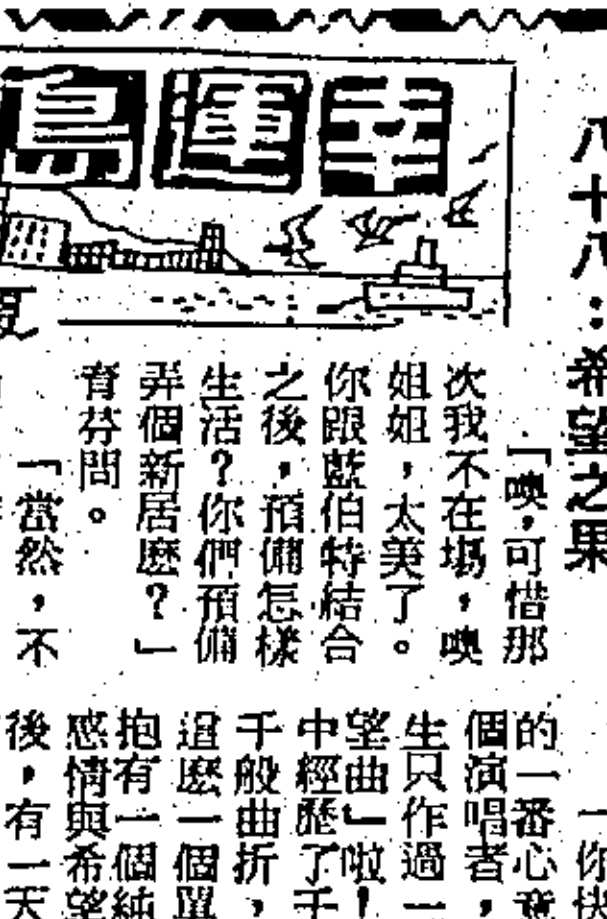 幸運鳥
八十八：希望之果
「噢，可惜那
次我不在場，噢
姐姐，太美了。
你跟藍伯特結合
之後，預備怎樣
生活？你們預備
弄個新居麼？」
育芬問。
「當然，不
一你快
的一番心意
個演唱者，
生只作過一
望曲」啦！
中經歷了千
千般曲折，
這麼一個單
抱有一個純
感情與希望
後，有一天